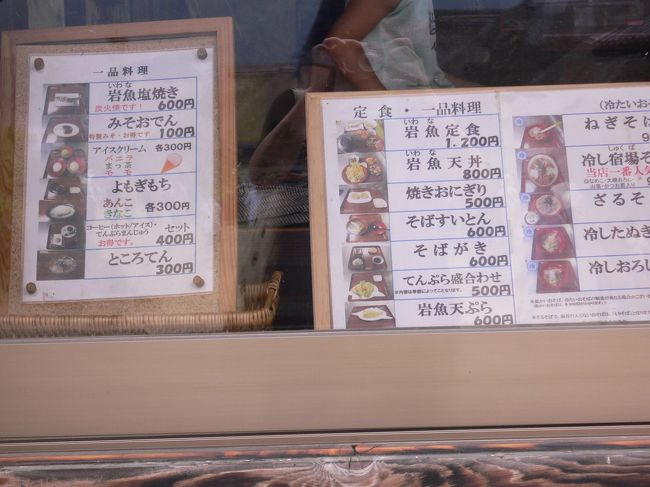 一品料理
いわな
岩魚塩焼き
炭火焼です！ 600円
みそおでん
特製みそ・お得です！ 100円
アイスクリーム 各300円
バニラ
まっ茶
モモ
よもぎもち
あんこ
きなこ 各300円
コーヒー(ホット/アイス)・
てんぷらまんじゅう セット
お得です。 400円
ところてん
300円
定食・一品料理
いわな
岩魚定食
1.200円
いわな
岩魚天丼
800円
焼きおにぎり
500円
そばすいとん
600円
そばがき
600円
てんぷら盛合わせ
500円
岩魚天ぷら
600円
(冷たいおそ
ねぎそば
9
しゅくば
冷し宿場そ
当店一番人気
ざるそ
冷したぬき
冷しおろし